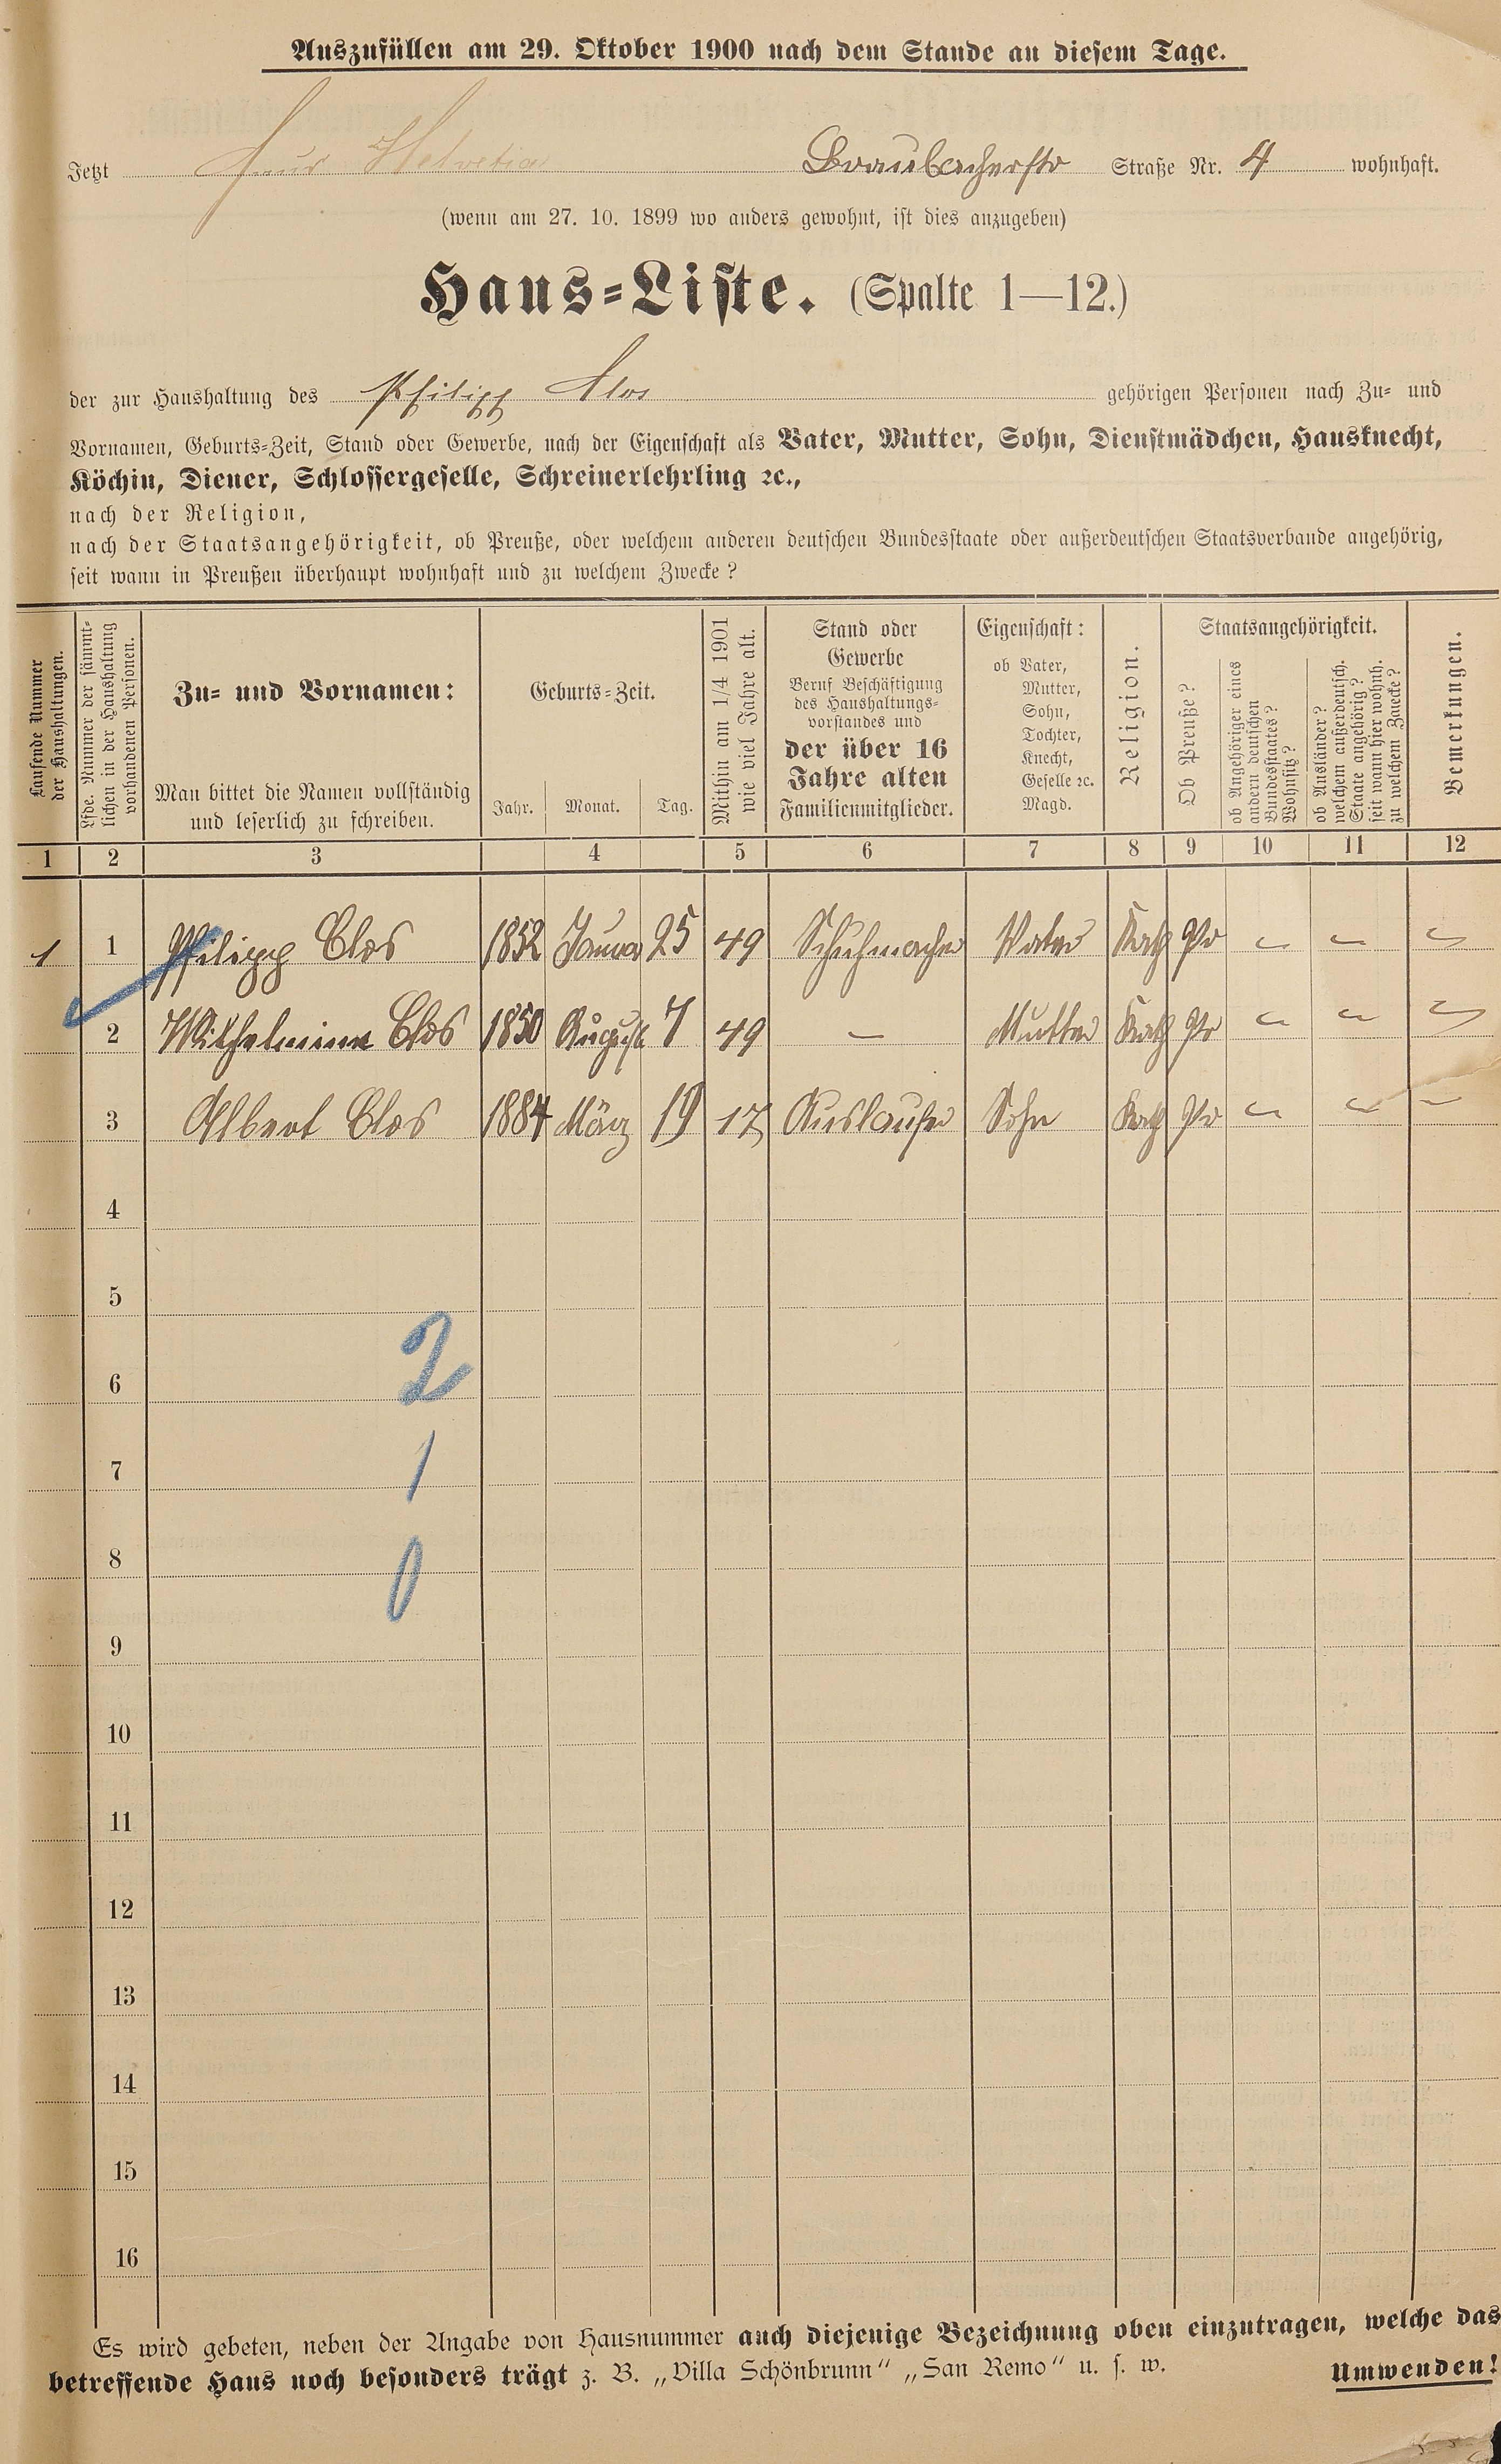 Auszufüllen am 29. Oktober 1900 nach dem Stande an diesem Tage.
Jetzt Helvetia Braubacherstr Straße Nr. 4 wohnhaft.
(wenn am 27. 10. 1899 wo anders gewohnt, ist dies anzugeben)
Haus-Liste. (Spalte 1—12.)
der zur Haushaltung des Philipp Clos gehörigen Personen nach Zu- und
Vornamen, Geburts-Zeit, Stand oder Gewerbe, nach der Eigenschaft als Vater, Mutter, Sohn, Dienstmädchen, Hausknecht,
Köchin, Diener, Schlossergeselle, Schreinerlehrling ꝛc.,
nach der Religion,
nach der Staatsangehörigkeit, ob Preuße, oder welchem anderen deutschen Bundesstaate oder außerdeutschen Staatsverbande angehörig,
seit wann in Preußen überhaupt wohnhaft und zu welchem Zwecke?
Laufende Nummer
der Haushaltungen.
Lfde. Nummer der sämmt-
lichen in der Haushaltung
vorhandenen Personen.
Zu- und Vornamen:
Man bittet die Namen vollständig
und leserlich zu schreiben.
Geburts-Zeit.
Jahr. Monat. Tag.
Mithin am 1/4 1901
wie viel Jahre alt.
Stand oder
Gewerbe
Beruf Beschäftigung
des Haushaltungs-
vorstandes und
der über 16
Jahre alten
Familienmitglieder.
Eigenschaft:
ob Vater,
Mutter,
Sohn,
Tochter,
Knecht,
Geselle ꝛc.
Magd.
Religion.
Staatsangehörigkeit.
Ob Preuße?
ob Angehöriger eines
andern deutschen
Bundesstaates?
Wohnsitz?
ob Ausländer?
welchem außerdeutsch.
Staate angehörig?
seit wann hier wohnh.
zu welchem Zwecke?
Bemerkungen.
1 2 3 4 5 6 7 8 9 10 11 12
1 1 Philipp Clos 1852 Januar 25 49 Schuhmacher Vater Kath Pr — — —
2 Wilhelmine Clos 1850 August 7 49 — Mutter Kath Pr — — —
3 Albert Clos 1884 März 19 17 Auslaufer Sohn Kath Pr — — —
4
5
6 2
7 1
8 0
9
10
11
12
13
14
15
16
Es wird gebeten, neben der Angabe von Hausnummer auch diejenige Bezeichnung oben einzutragen, welche das
betreffende Haus noch besonders trägt z. B. „Villa Schönbrunn“ „San Remo“ u. s. w. Umwenden!